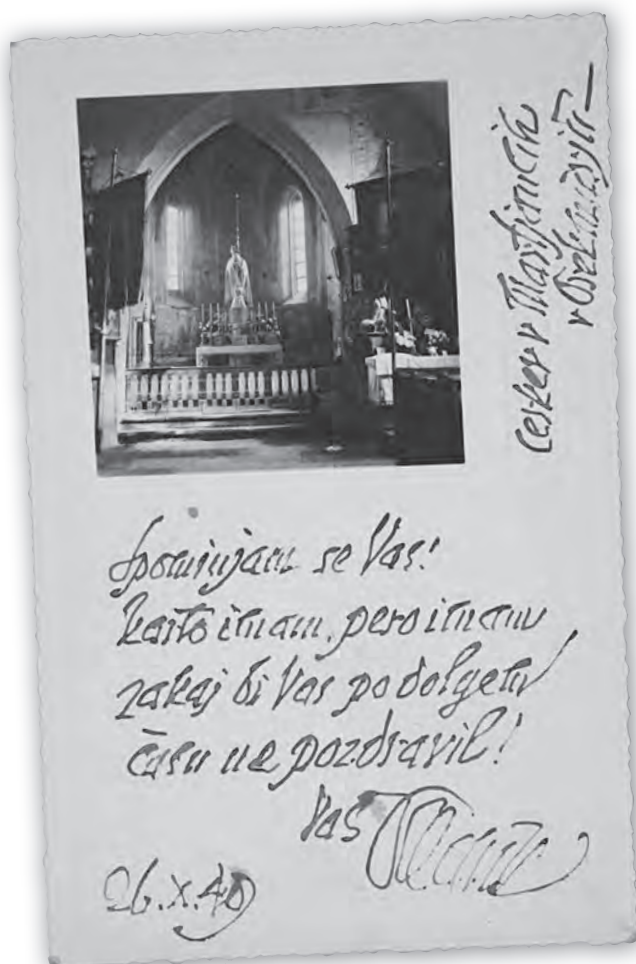 Cerkev v Martjancih
v Prekmurju –
Spominjam se Vas!
karto imam, pero imam
zakaj bi Vas po dolgem
času ne pozdravil!
Vaš
26.X.40